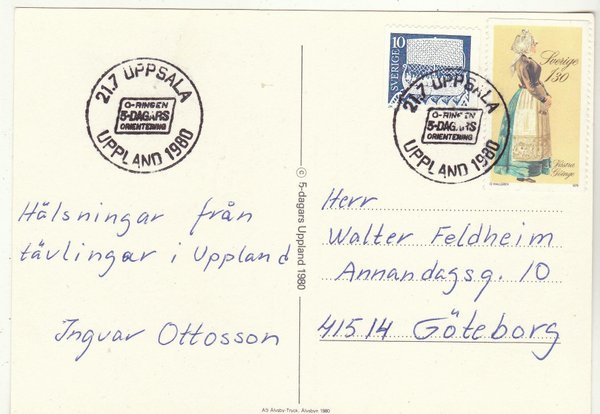 21.7 UPPSALA
O-RINGEN
5-DAGARS
ORIENTERING
UPPLAND 1980
10
SVERIGE
21.7 UPPSALA
O-RINGEN
5-DAGARS
ORIENTERING
UPPLAND 1980
Sverige
130
Västra
Göinge
Hälsningar från
tävlingar i Uppland
Ingvar Ottosson
© 5-dagars Uppland 1980
Herr
Walter Feldheim
Annandagsg. 10
41514 Göteborg
AB Älvsby-Tryck, Älvsbyn 1980